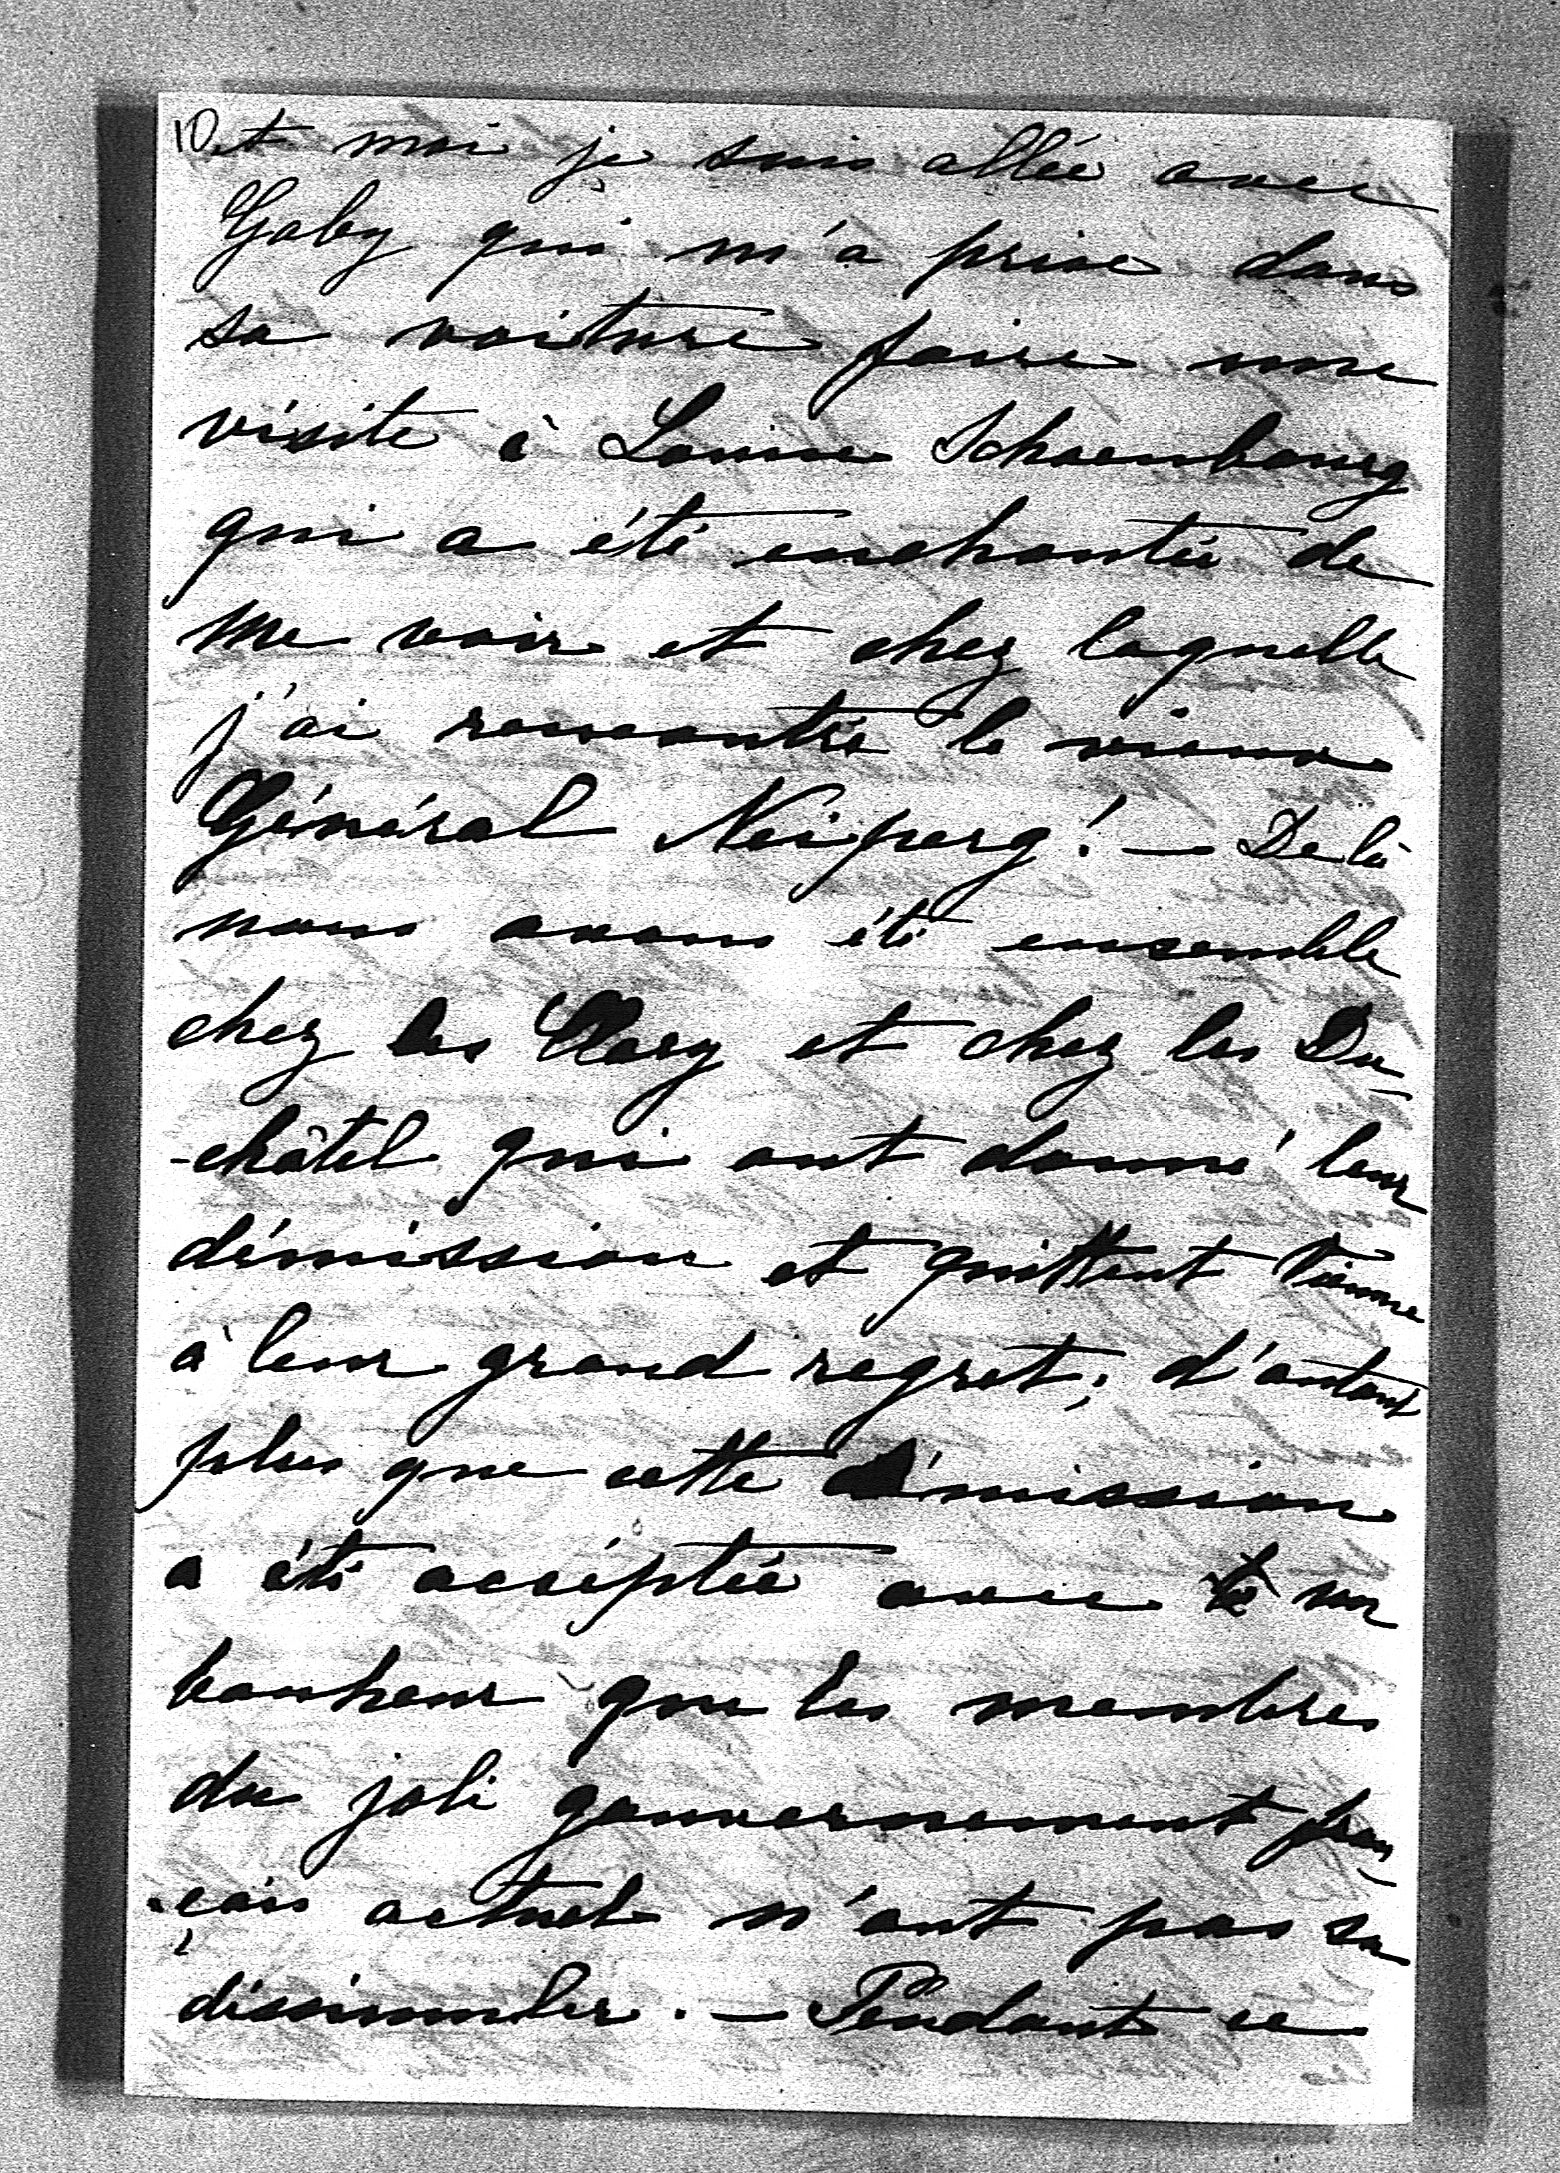 10 et moi je suis allée avec
Gaby qui m'a prise dans
sa voiture faire une
visite à Louise Schoenbourg
qui a été enchantée de
me voir et chez laquelle
j'ai rencontré le vieux
Général Neiperg! — De là
nous avons été ensemble
chez les Clary et chez les Du-
-châtel qui ont donné leur
démission et quittent Vienne
à leur grand regret; d'autant
plus que cette démission
a été acséptée avec un
bonheur que les membres
du joli gouvernement fran-
-çais actuel n'ont pas su
dissimuler. — Pendant ce